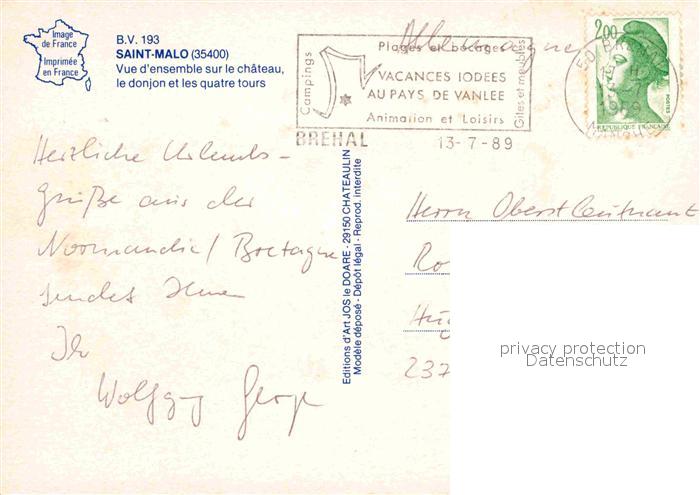 Image
de France
Imprimée
en France
B.V. 193
SAINT-MALO (35400)
Vue d'ensemble sur le château,
le donjon et les quatre tours
Allemagne
Campings
Plages et bocages
VACANCES IODEES
AU PAYS DE VANLEE
Animation et Loisirs
Gîtes et meublés
BREHAL
13-7-89
50 BREHAL
1989
2,00
POSTES
REPUBLIQUE FRANÇAISE
Herzliche Urlaubs-
grüße aus der
Normandie/Bretagne
sendet Ihnen
Ihr
Wolfgang
Editions d'Art JOS le DOARE - 29150 CHATEAULIN
Modèle déposé - Dépôt légal - Reprod. interdite
Herrn Oberstleutnant
Ro
237
privacy protection
Datenschutz